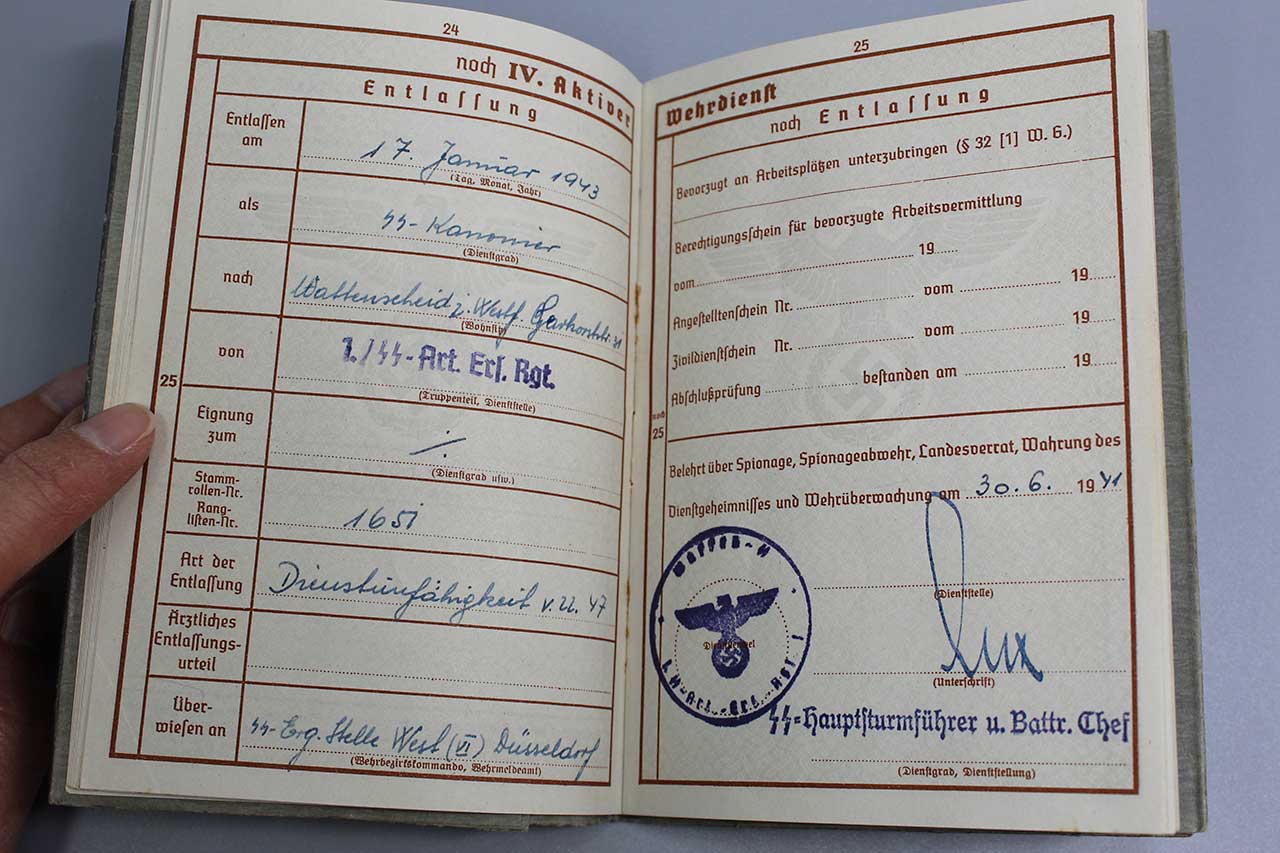 24
noch IV. Aktiver
Entlassung
Entlassen am
17. Januar 1943
(Tag, Monat, Jahr)
als
SS-Kanonier
(Dienstgrad)
nach
Wattenscheid i. Westf.
(Wohnsitz)
von
1./SS-Art. Ers. Rgt.
(Truppenteil, Dienststelle)
25
Eignung zum
./.
(Dienstgrad usw.)
Stamm-
rollen-Nr.
Rang-
listen-Nr.
165
Art der
Entlassung
Dienstunfähigkeit v.
Ärztliches
Entlassungs-
urteil
Über-
wiesen an
SS-Erg. Stelle West (VI) Düsseldorf
(Wehrbezirkskommando, Wehrmeldeamt)
25
Wehrdienst
noch Entlassung
Bevorzugt an Arbeitsplätzen unterzubringen (§ 32 [1] W. G.)
Berechtigungsschein für bevorzugte Arbeitsvermittlung
vom 19
Angestelltenschein Nr. vom 19
Zivildienstschein Nr. vom 19
Abschlußprüfung bestanden am 19
noch
25
Belehrt über Spionage, Spionageabwehr, Landesverrat, Wahrung des
Dienstgeheimnisses und Wehrüberwachung am 30.6. 1941
Waffen-SS
Dienstsiegel
(Dienststelle)
(Unterschrift)
SS=Hauptsturmführer u. Battr. Chef
(Dienstgrad, Dienststellung)